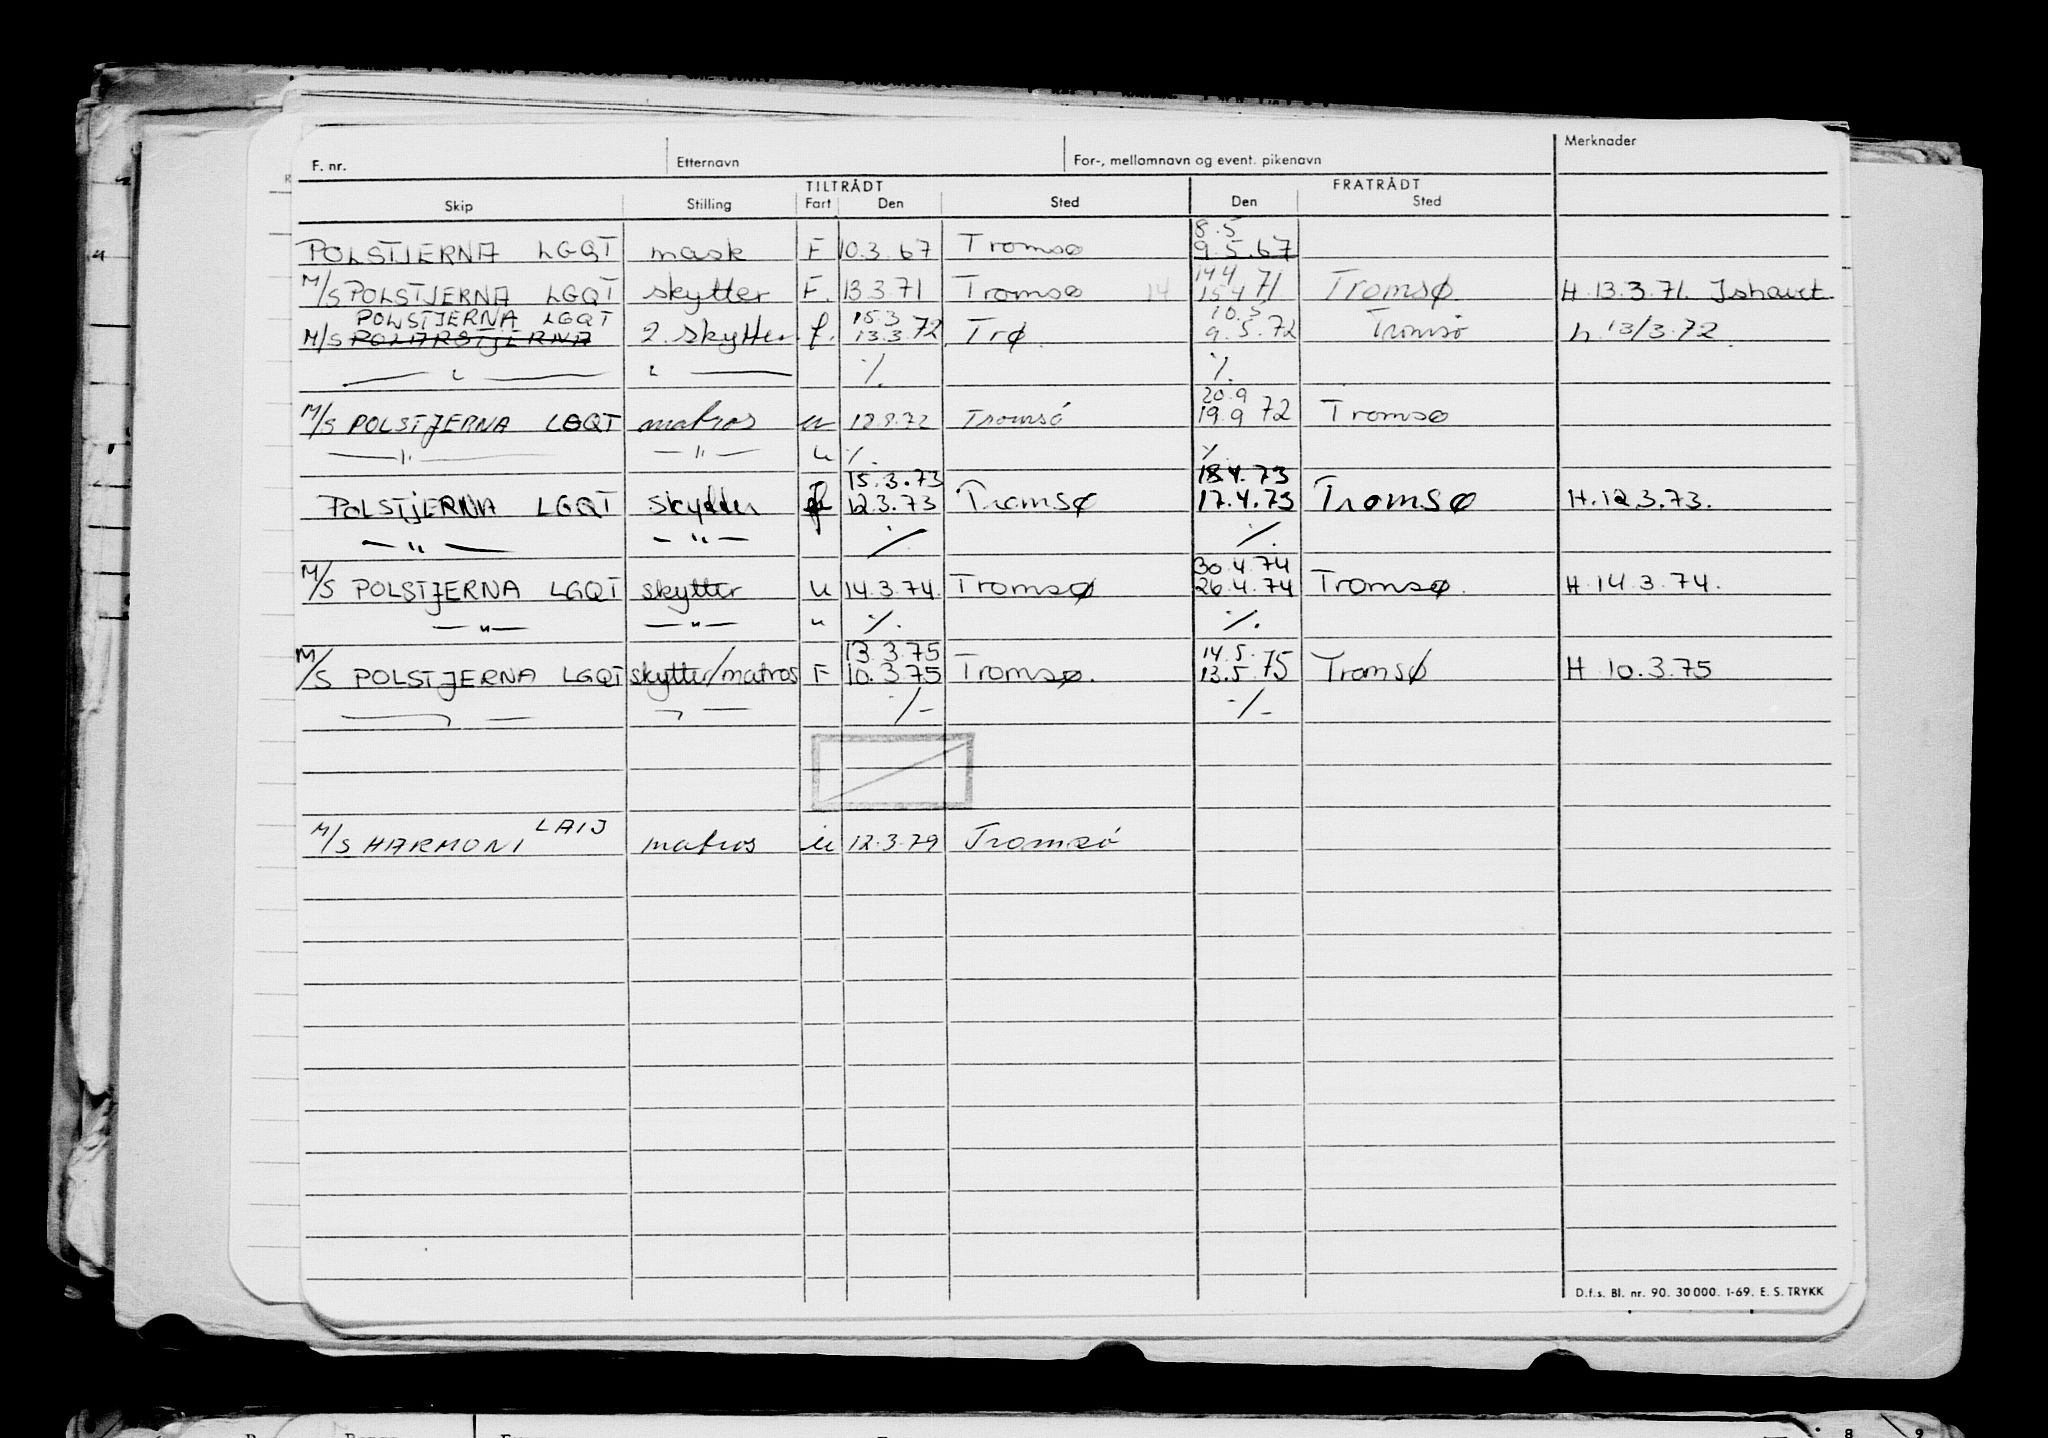 F. nr. Etternavn For-, mellomnavn og event. pikenavn Merknader
TILTRÅDT FRATRÅDT
Skip Stilling Fart Den Sted Den Sted
8.5
POLSTJERNA LGQT mask F 10.3.67 Tromsø 9.5.67
14 4
M/S POLSTJERNA LGQT skytter F. 13.3.71 Tromsø 14 15 4 71 Tromsø H 13.3.71. Ishavet
POLSTJERNA LGQT 15.3 10.5
M/S POLARSTJERNA 2. skytter f. 13.3.72 Trø 9.5.72 Tromsø h 13/3.72
— " — " — ·/. ·/.
20.9
M/S POLSTJERNA LGQT matros u 12.8.72 Tromsö 19.9 72 Tromsø
— " — — " — u ·/. ·/.
15.3.73 18.4.73
POLSTJERNA LGQT skytter f 12.3.73 Tromsø 17.4.73 Tromsø H.12.3.73.
— " — — " — ·/. ·/.
30.4.74
M/S POLSTJERNA LGQT skytter u 14.3.74. Tromsø 26.4.74 Tromsø. H 14.3.74.
— " — — " — " ·/. ·/.
13.3.75 14.5.
M/S POLSTJERNA LGQT skytter/matros F 10.3.75 Tromsø. 13.5.75 Tromsø H 10.3.75
— " — — " — ·/- ·/-
LAIJ
M/S HARMONI matros u 12.3.79 Tromsö
D.f.s. Bl. nr. 90. 30 000. 1-69. E. S. TRYKK